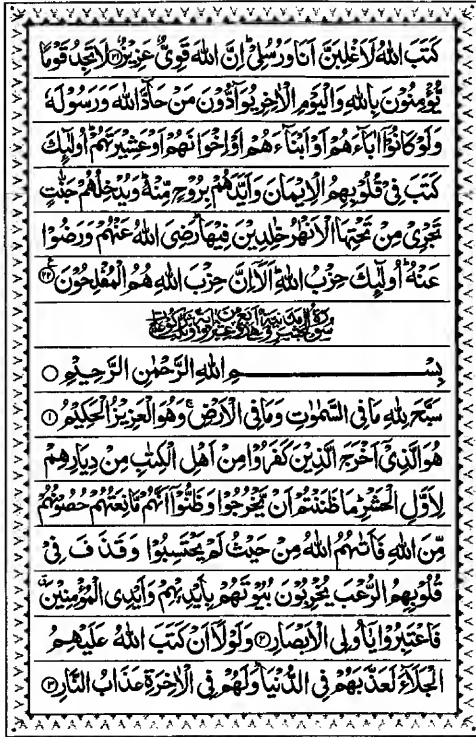 كَتَبَ اللّٰهُ لَاَغْلِبَنَّ اَنَا وَرُسُلِيْ ؕ اِنَّ اللّٰهَ قَوِيٌّ عَزِيْزٌ ﴿۲۱﴾ لَا تَجِدُ قَوْمًا
يُّؤْمِنُوْنَ بِاللّٰهِ وَالْيَوْمِ الْاٰخِرِ يُوَآدُّوْنَ مَنْ حَآدَّ اللّٰهَ وَرَسُوْلَهٗ
وَلَوْ كَانُوْٓا اٰبَآءَهُمْ اَوْ اَبْنَآءَهُمْ اَوْ اِخْوَانَهُمْ اَوْ عَشِيْرَتَهُمْ ؕ اُولٰٓئِكَ
كَتَبَ فِيْ قُلُوْبِهِمُ الْاِيْمَانَ وَاَيَّدَهُمْ بِرُوْحٍ مِّنْهُ ؕ وَيُدْخِلُهُمْ جَنّٰتٍ
تَجْرِيْ مِنْ تَحْتِهَا الْاَنْهٰرُ خٰلِدِيْنَ فِيْهَا ؕ رَضِيَ اللّٰهُ عَنْهُمْ وَرَضُوْا
عَنْهُ ؕ اُولٰٓئِكَ حِزْبُ اللّٰهِ ؕ اَلَآ اِنَّ حِزْبَ اللّٰهِ هُمُ الْمُفْلِحُوْنَ ﴿۲۲﴾
بِسْمِ اللّٰهِ الرَّحْمٰنِ الرَّحِيْمِ ○
سَبَّحَ لِلّٰهِ مَا فِي السَّمٰوٰتِ وَمَا فِي الْاَرْضِ ۚ وَهُوَ الْعَزِيْزُ الْحَكِيْمُ ﴿۱﴾
هُوَ الَّذِيْٓ اَخْرَجَ الَّذِيْنَ كَفَرُوْا مِنْ اَهْلِ الْكِتٰبِ مِنْ دِيَارِهِمْ
لِاَوَّلِ الْحَشْرِ ؕ مَا ظَنَنْتُمْ اَنْ يَّخْرُجُوْا وَظَنُّوْٓا اَنَّهُمْ مَّانِعَتُهُمْ حُصُوْنُهُمْ
مِّنَ اللّٰهِ فَاَتٰىهُمُ اللّٰهُ مِنْ حَيْثُ لَمْ يَحْتَسِبُوْا وَقَذَفَ فِيْ
قُلُوْبِهِمُ الرُّعْبَ يُخْرِبُوْنَ بُيُوْتَهُمْ بِاَيْدِيْهِمْ وَاَيْدِي الْمُؤْمِنِيْنَ
فَاعْتَبِرُوْا يٰٓاُولِي الْاَبْصَارِ ﴿۲﴾ وَلَوْلَآ اَنْ كَتَبَ اللّٰهُ عَلَيْهِمُ
الْجَلَآءَ لَعَذَّبَهُمْ فِي الدُّنْيَا ؕ وَلَهُمْ فِي الْاٰخِرَةِ عَذَابُ النَّارِ ﴿۳﴾